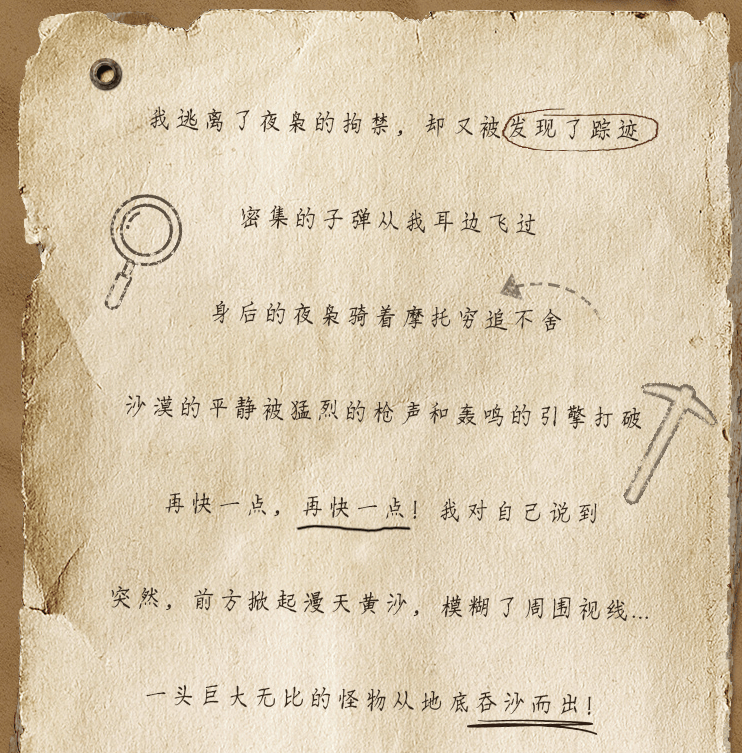 我逃离了夜枭的拘禁，却又被发现了踪迹
密集的子弹从我耳边飞过
身后的夜枭骑着摩托穷追不舍
沙漠的平静被猛烈的枪声和轰鸣的引擎打破
再快一点，再快一点！我对自己说到
突然，前方掀起漫天黄沙，模糊了周围视线...
一头巨大无比的怪物从地底吞沙而出！